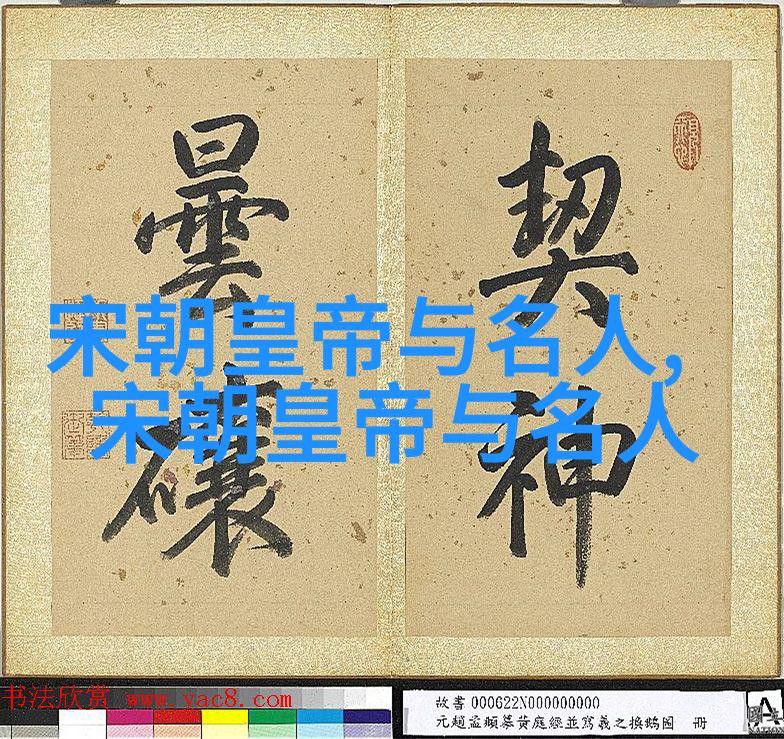 契神
曇
宋朝皇帝与名人,
宋朝皇帝与名人
书法欣赏 www.yac8.com
故書000622N000000000
元趙孟頫摹黃庭經並寫羲之換鵝圖 冊